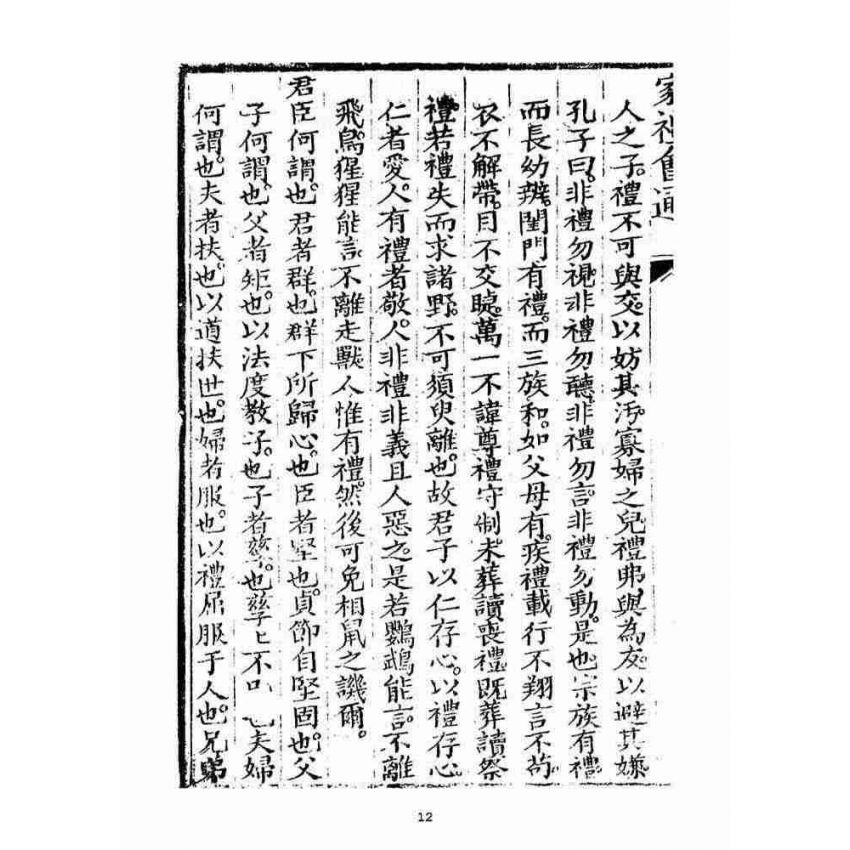 家礼會通
人之子。禮不可與交。以妨其汚。寡婦之兒。禮弗與為友。以避其嫌。
孔子曰。非禮勿視。非禮勿聽。非禮勿言。非禮勿動。是也。宗族有禮。
而長幼辨。閨門有禮。而三族和。如父母有疾。禮載行不翔。言不苟。
衣不解帶。目不交睫。萬一不諱。尊禮守制。未葬讀喪禮。既葬讀祭
禮。若禮失而求諸野。不可須臾離也。故君子以仁存心。以禮存心。
仁者愛人。有禮者敬人。非禮非義。且人惡之。是若鸚鵡能言。不離
飛鳥。猩猩能言。不離走獸。人惟有禮。然後可免相鼠之譏爾。
君臣何謂也。君者群也。群下所歸心也。臣者堅也。貞節自堅固也。父
子何謂也。父者矩也。以法度教子也。子者孳也。孳〻不也。夫婦
何謂也。夫者扶也。以道扶世也。婦者服也。以禮屈服于人也。兄弟
12